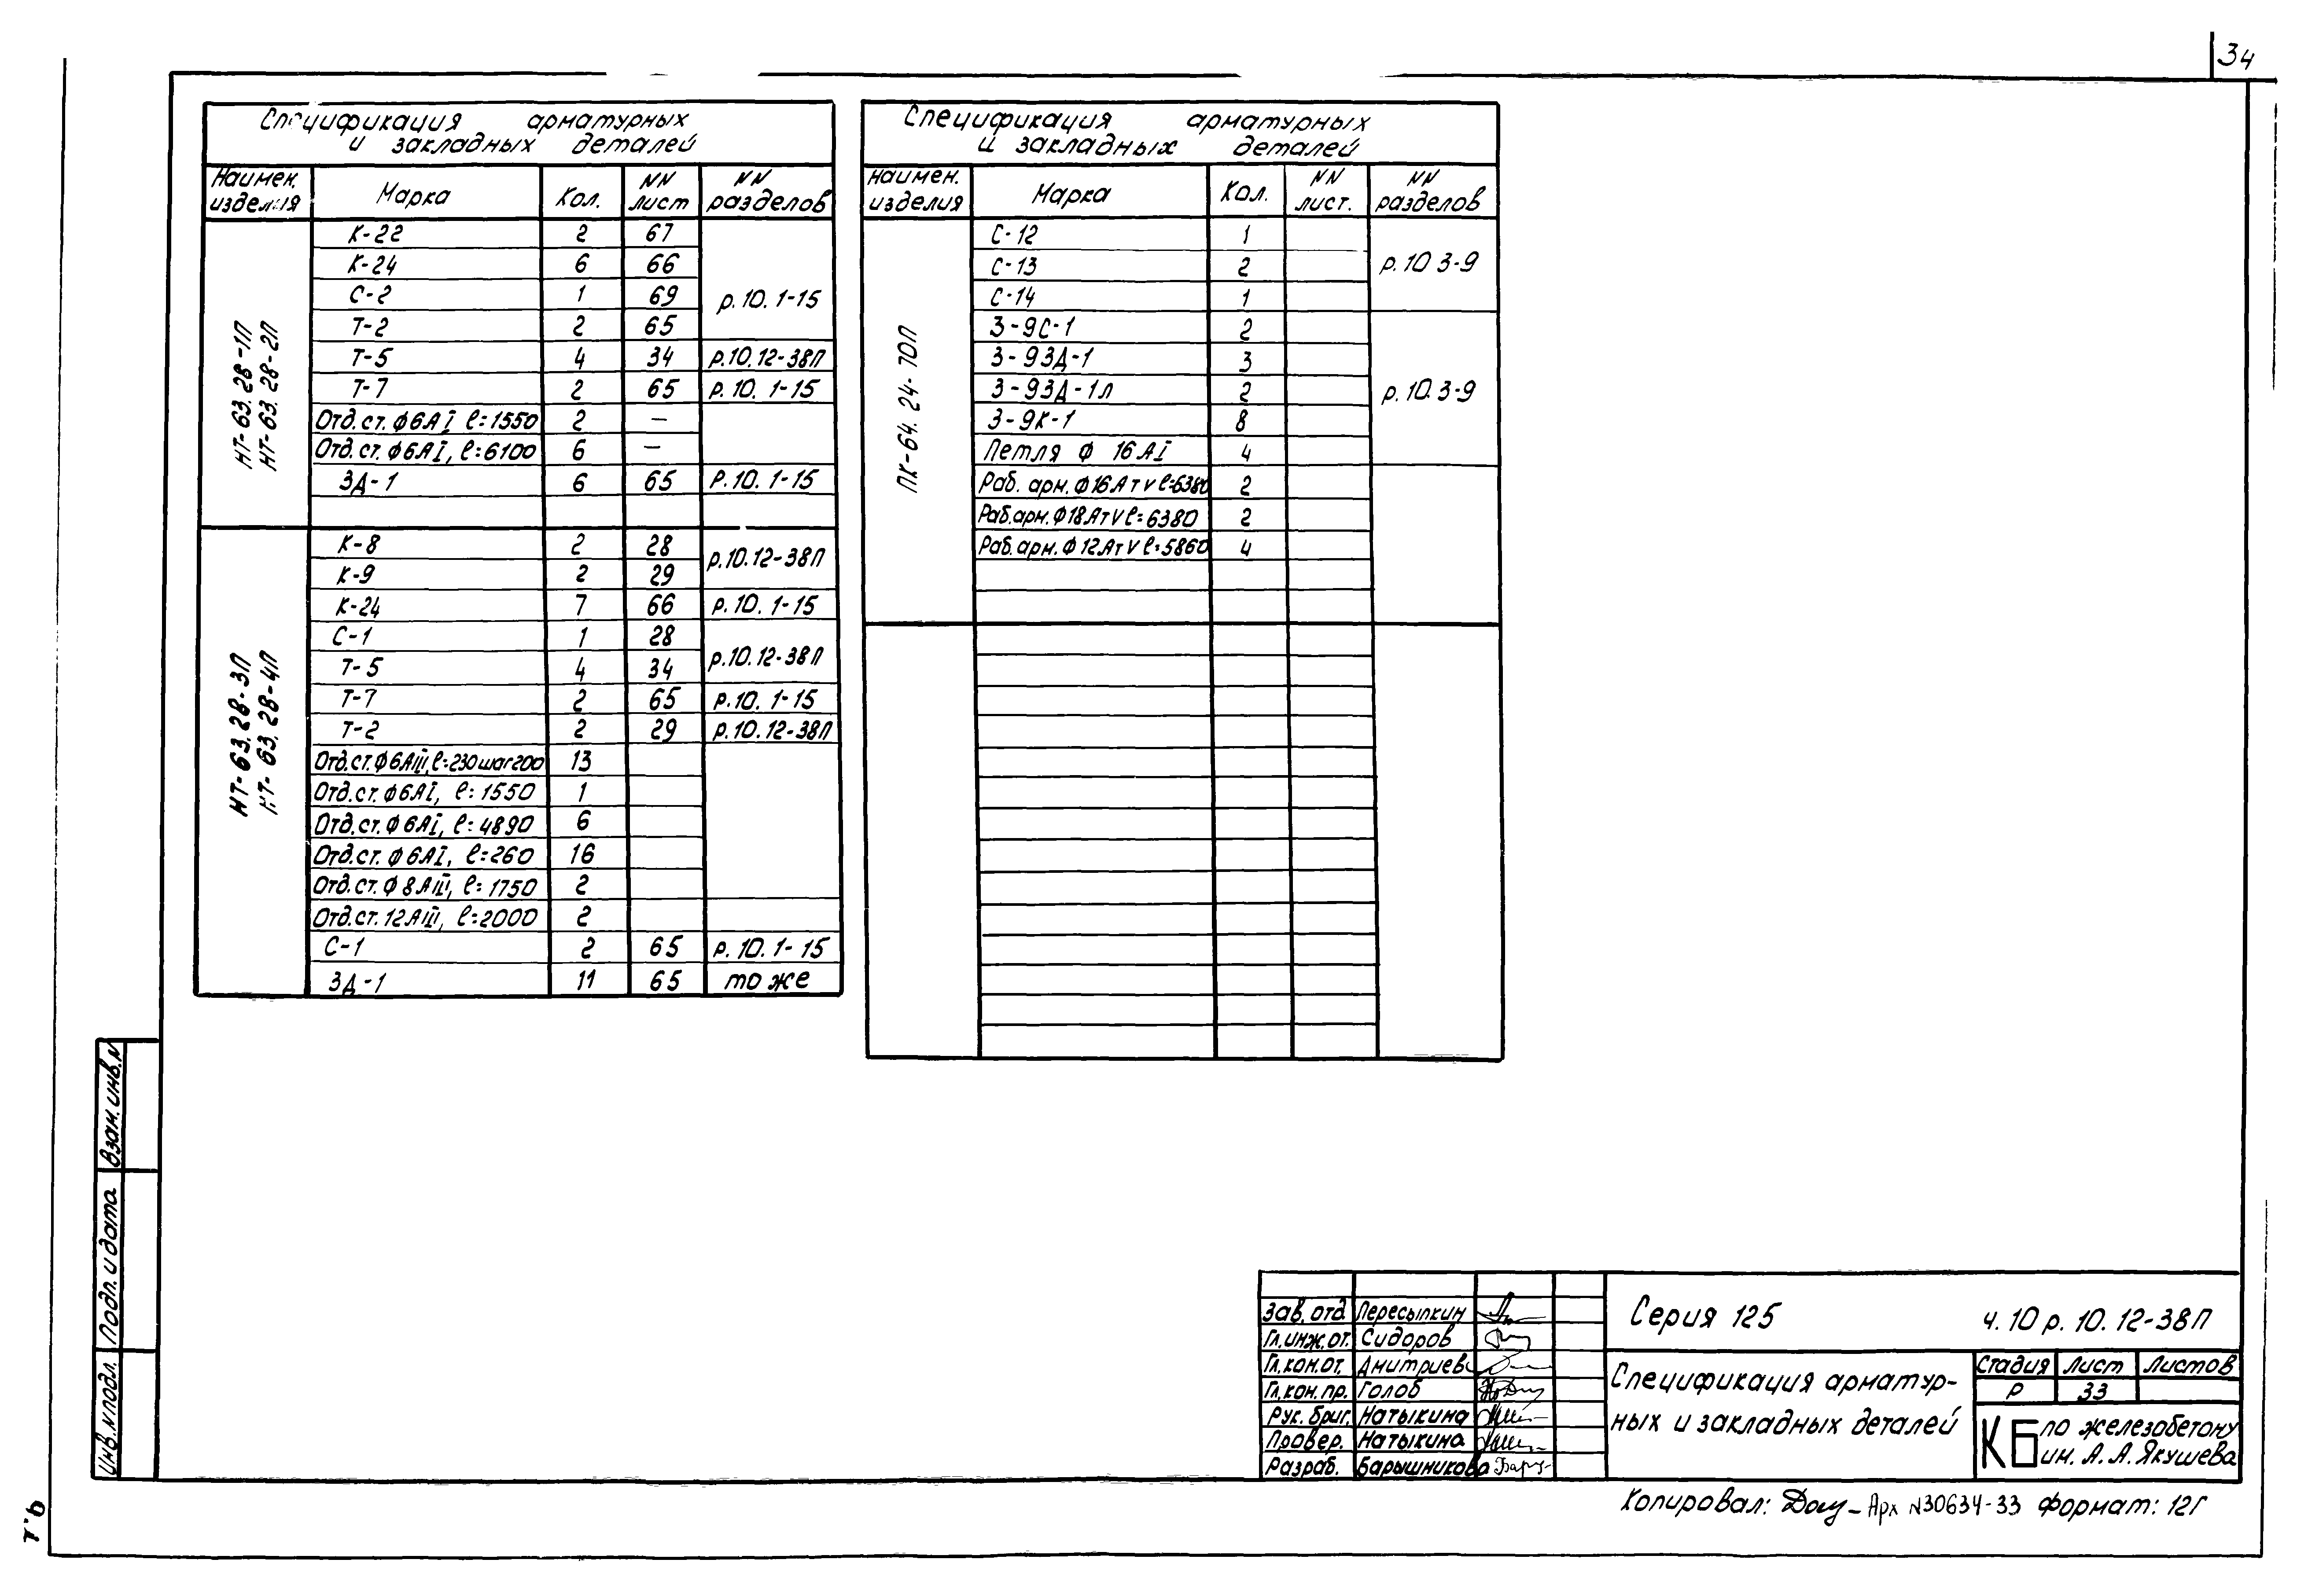 34
Спецификация арматурных
и закладных деталей
Наимен. изделия Марка Кол. NN лист NN разделов
НТ-63.28-1П
НТ-63.28-2П
К-22 2 67
К-24 6 66
С-2 1 69 р.10.1-15
Т-2 2 65
Т-5 4 34 р.10.12-38П
Т-7 2 65 р.10.1-15
Отд.ст.Ф6АI ℓ=1550 2 —
Отд.ст.Ф6АI, ℓ=6100 6 —
ЗД-1 6 65 Р.10.1-15
НТ-63.28-3П
НТ-63.28-4П
К-8 2 28 р.10.12-38П
К-9 2 29
К-24 7 66 р.10.1-15
С-1 1 28 р.10.12-38П
Т-5 4 34
Т-7 2 65 р.10.1-15
Т-2 2 29 р.10.12-38П
Отд.ст.Ф6АIII, ℓ=230 шаг 200 13
Отд.ст.Ф6АI, ℓ=1550 1
Отд.ст.Ф6АI, ℓ=4890 6
Отд.ст.Ф6АI, ℓ=260 16
Отд.ст.Ф8АIII, ℓ=1750 2
Отд.ст.12АIII, ℓ=2000 2
С-1 2 65 р.10.1-15
ЗД-1 11 65 то же
Спецификация арматурных
и закладных деталей
Наимен. изделия Марка Кол. NN лист. NN разделов
ПК-64.24-70П
С-12 1
С-13 2 р.10 3-9
С-14 1
3-9С-1 2
3-9ЗД-1 3
3-9ЗД-1л 2 р.10.3-9
3-9К-1 8
Петля Ф 16АI 4
Раб. арм. Ф16АтV ℓ=6380 2
Раб.арм.Ф18АтV ℓ=6380 2
Раб.арм.Ф12АтV ℓ=5860 4
Взам.инв.N
Подп. и дата
Инв.N подл.
Зав.отд. Пересыпкин
Гл.инж.от. Сидоров
Гл.кон.от. Дмитриев
Гл.кон.пр. Голоб
Рук.бриг. Натыкина
Провер. Натыкина
Разраб. Барышникова
Серия 125 ч.10 р.10.12-38П
Спецификация арматур-
ных и закладных деталей
Стадия Лист Листов
Р 33
КБ по железобетону
им. А.А.Якушева
Копировал: Арх N30634-33 Формат: 12Г